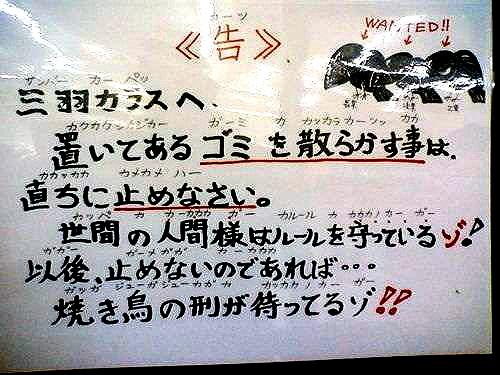 カーッ
《告》
WANTED!!
サンバー カー ペッ
三羽カラスへ、
カクカクシカジカー ガーミ カ カッカラカーッッ カカ
置いてあるゴミを散らかす事は、
カカッカカ カメカメ ハー
直ちに止めなさい。
カッペ カ カーカカカ ガー カルール カ カカカノカー ガー
世間の人間様はルールを守っているゾ!
ガガー ガーメガガ カーカカカ
以後、止めないのであれば・・・
ガッガ ジューガジューカガカ カッカカノカー ガー
焼き鳥の刑が待ってるゾ!!